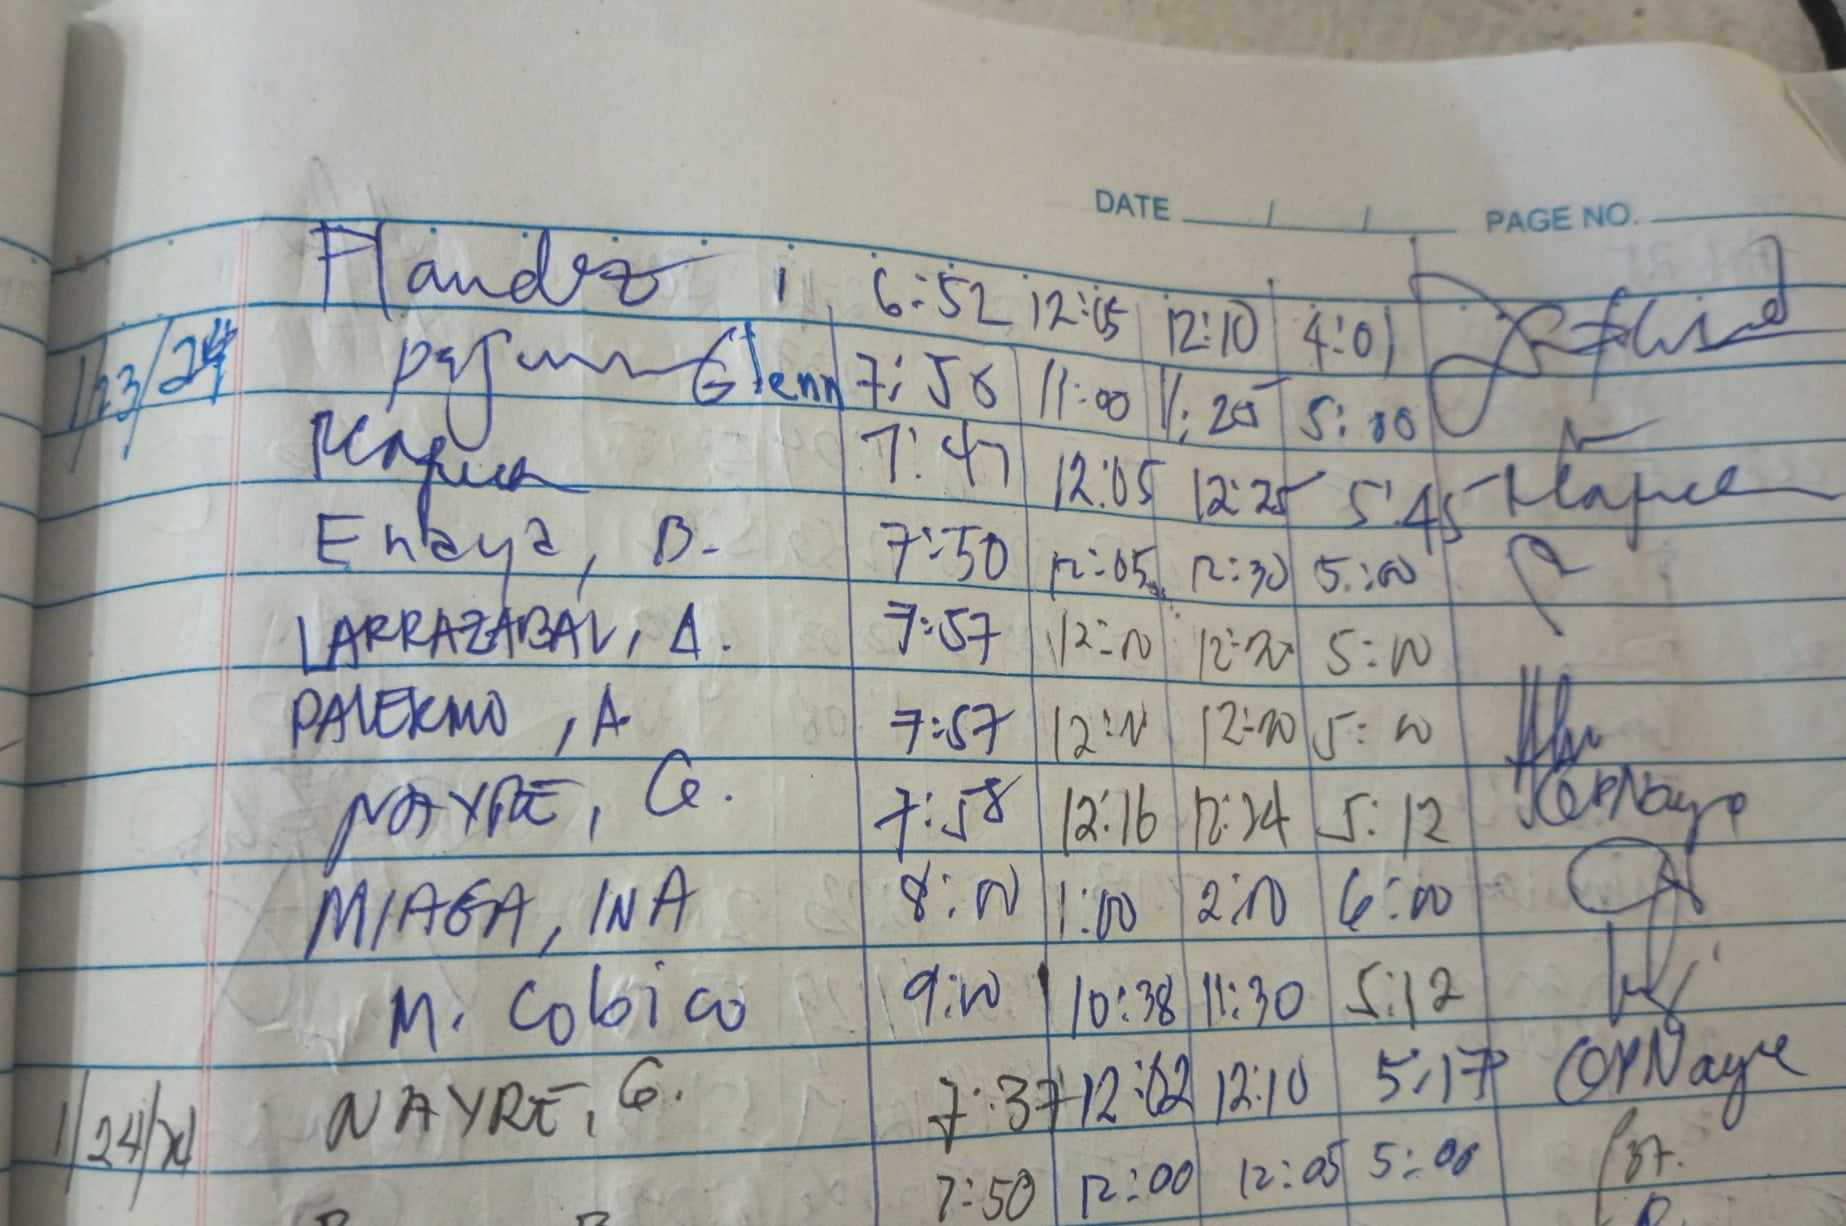 DATE / / PAGE NO.
Flandez 6:52 12:05 12:10 4:01
1/23/24 Glenn 7:58 11:00 11:25 5:00
7:47 12:05 12:25 5:45
Enaya, B. 7:50 12:05 12:30 5:00
LARRAZABAL, A. 7:57 12:00 12:30 5:00
PALERMO, A 7:57 12:00 12:30 5:00
NAYRE, G. 7:58 12:16 12:24 5:12 GPNayre
MIAGA, INA 8:00 1:00 2:00 6:00
M. Cobico 9:00 10:38 11:30 5:12
1/24/24 NAYRE, G. 7:37 12:02 12:10 5:17 GPNayre
7:50 12:00 12:05 5:00